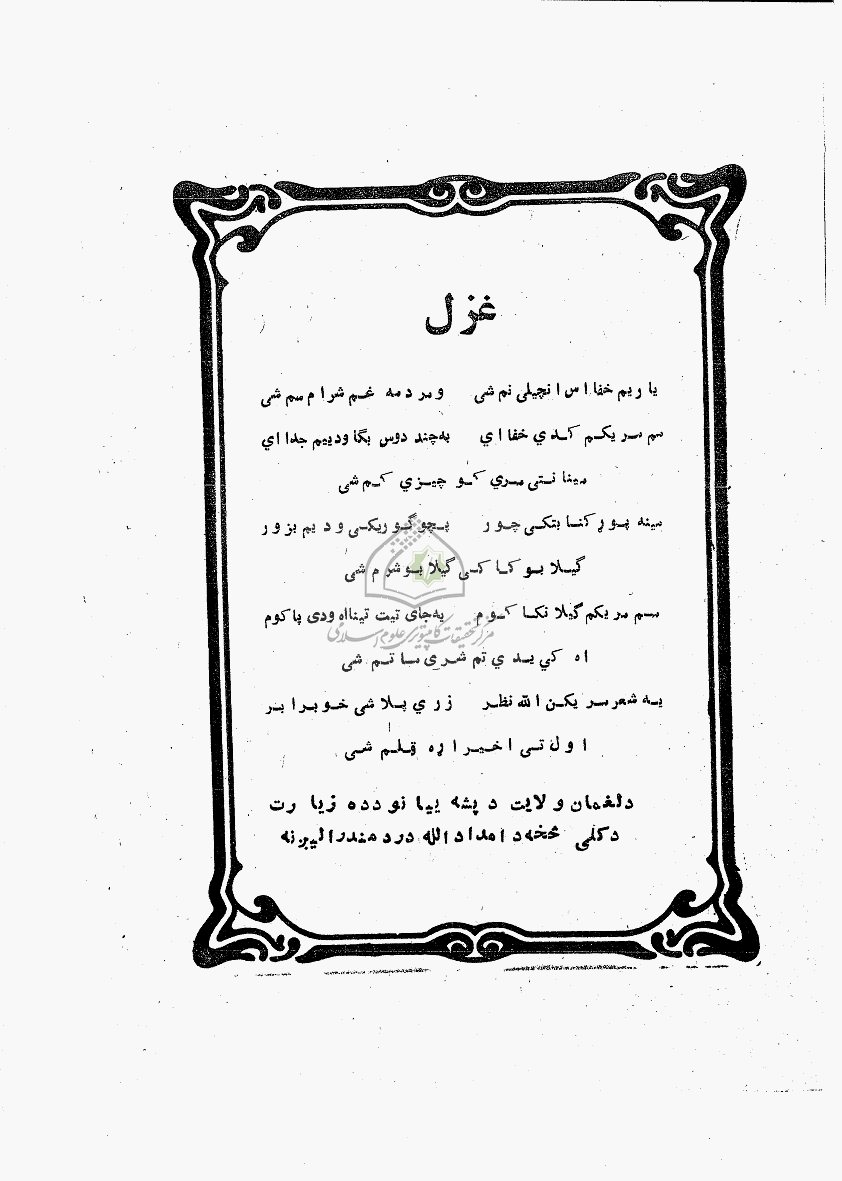 غزل
یا ریم خفا اس انچیلی نم شی    و مر دمه غم شرام سم شی
سم سر یکم کدي خفا اي    په چند دوس بگا ودییم جدا اي
مینا نتی مري کو چیزي کم شی
مینه پور کنا بتکی چور    پچو گوریکی و دیم بزور
گیلا بو کا کی گیلا بو شرم شی
سم مر یکم گیلا نکا کوم    په جای تیت تینااه ودی پاکوم
اه کي یدي تم شری سا تم شی
په شعر سر یکن الله نظر    زري پلا شی خوبرابر
اول تی اخیراره قلم شی
دلغمان ولایت د پشه ییا نو دده زیارت
دکلی څخه د امداد الله درد مند
مرکز تحقیقات کامپیوتری علوم اسلامی